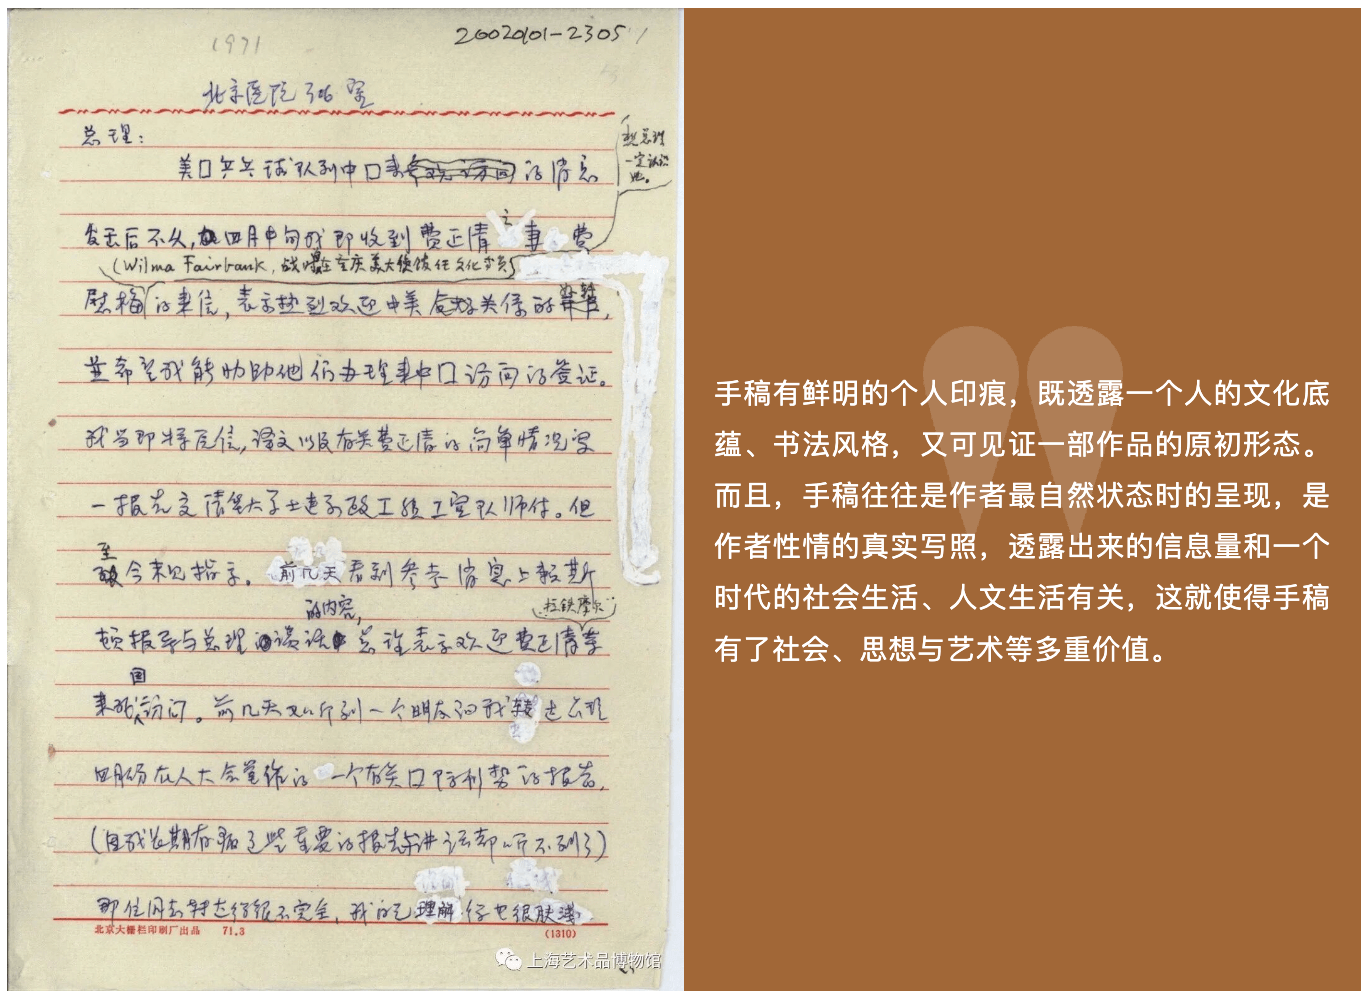 1971
20020101-2305
北京医院306室
总理：
想总理
一定认识
她。
美囗乒乓球队到中囗来的消息
发表后不久，四月中旬我即收到费正清之妻费
(Wilma Fairbank，战时在重庆美大使馆任文化专员)
慰梅的来信，表示热烈欢迎中美关系的
好转，
并希望我能协助他们办理来中囗访问的签证。
我当即将原信，译文以及有关费正清的简单情况写
一报告交清华大学土建系政工组工宣队师付。但
至
今未见指示。前几天看到参考消息上赖斯
的内容，
(拉铁摩尔)
顿报导与总理谈话 总理表示欢迎费正清等
国
来我访问。前几天又听到一个朋友向我转达总理
四月份在人大会堂作的一个有关囗际形势的报告，
(因我长期有病这些重要的报告讲话都听不到了)
那位同志转达得很不完全，我自己理解得也很肤浅。
北京大栅栏印刷厂出品 71.3
(1310)
上海艺术品博物馆
手稿有鲜明的个人印痕，既透露一个人的文化底
蕴、书法风格，又可见证一部作品的原初形态。
而且，手稿往往是作者最自然状态时的呈现，是
作者性情的真实写照，透露出来的信息量和一个
时代的社会生活、人文生活有关，这就使得手稿
有了社会、思想与艺术等多重价值。